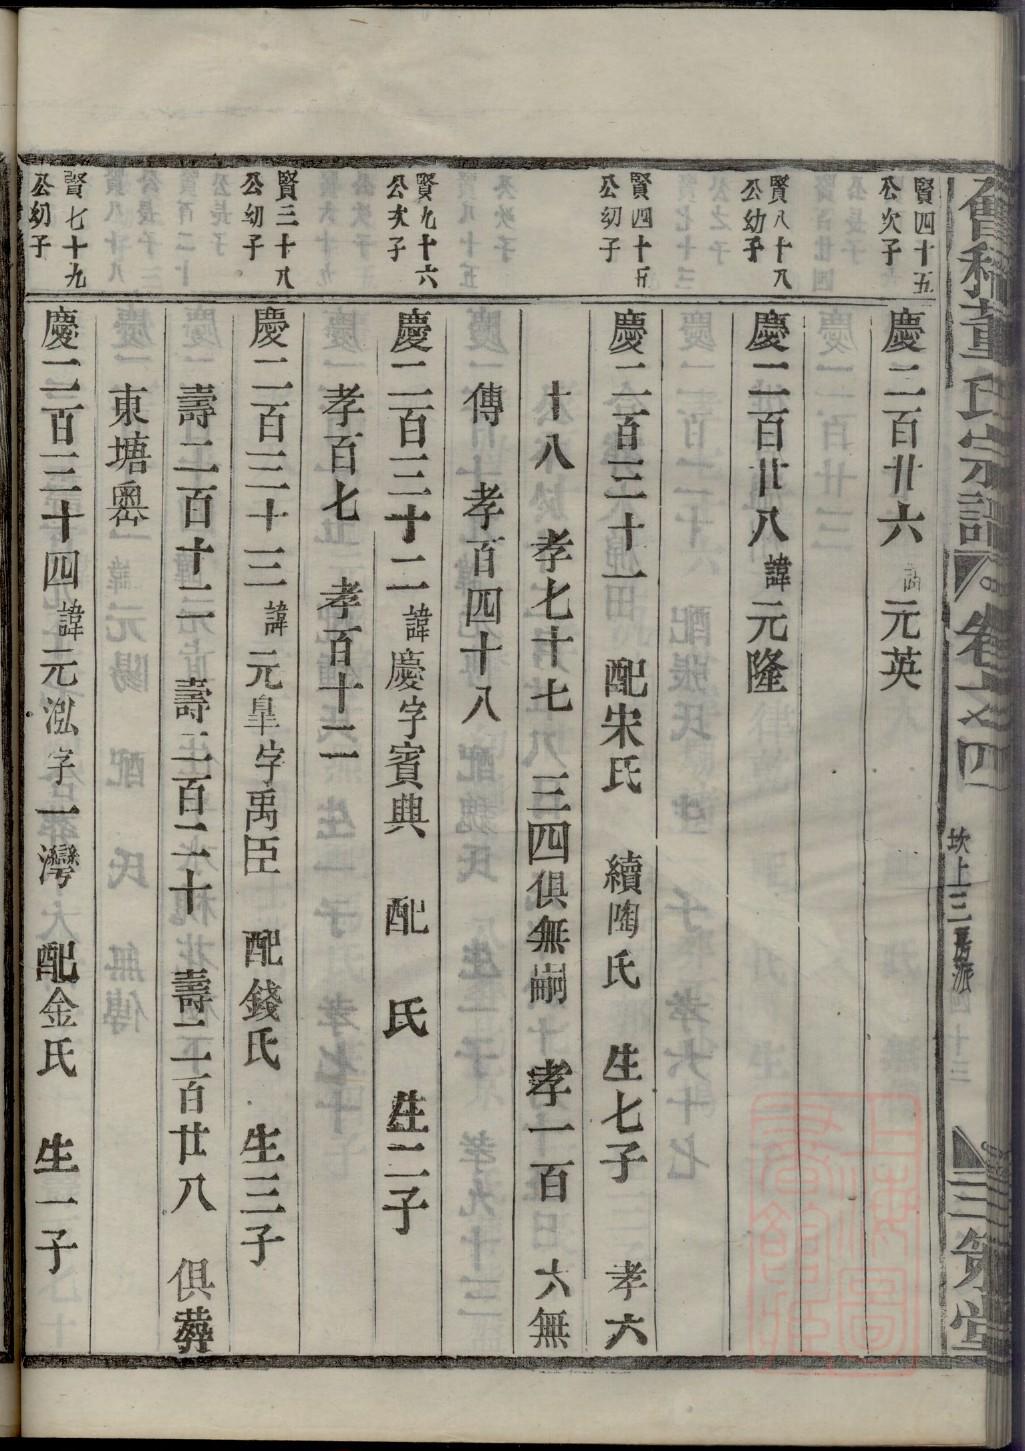 會稽董氏宗譜 卷之四 坎上三房派 四十三 三策堂
賢四十五
公次子
慶二百廿六 諱元英
賢八十八
公幼子
慶二百廿八 諱元隆
賢四十五
公幼子
慶二百三十一 配宋氏 續陶氏 生七子 孝六
十八 孝七十七 三四俱無嗣 孝一百 六無
傳 孝百四十八
賢九十六
公次子
慶二百三十二 諱慶字賓典 配 氏 生二子
孝百七 孝百十二
賢三十八
公幼子
慶二百三十三 諱元臯字禹臣 配錢氏 生三子
壽二百十二 壽二百二十 壽二百廿八 俱葬
東塘嶴
賢七十九
公幼子
慶二百三十四 諱元泓字一灣 配金氏 生一子